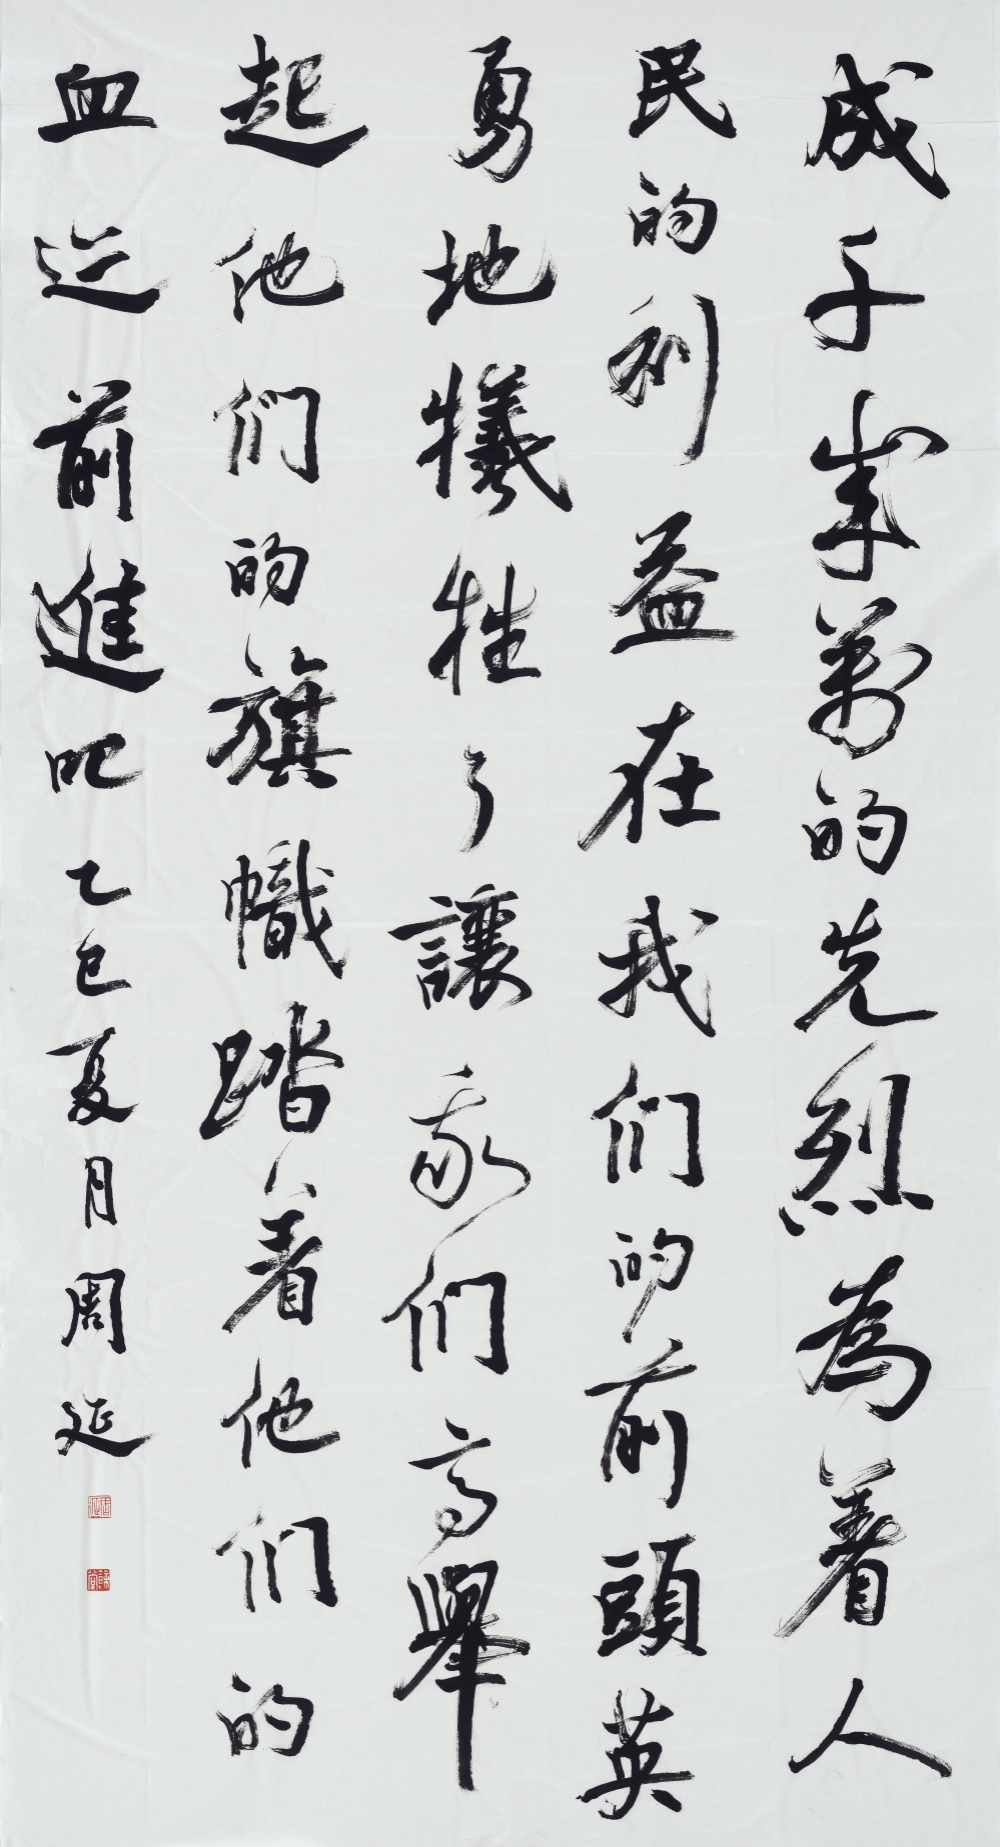 成千成萬的先烈為着人
民的利益在我們的前頭英
勇地犧牲了讓我們高舉
起他們的旗幟踏着他們的
血迹前進吧乙巳夏月周延